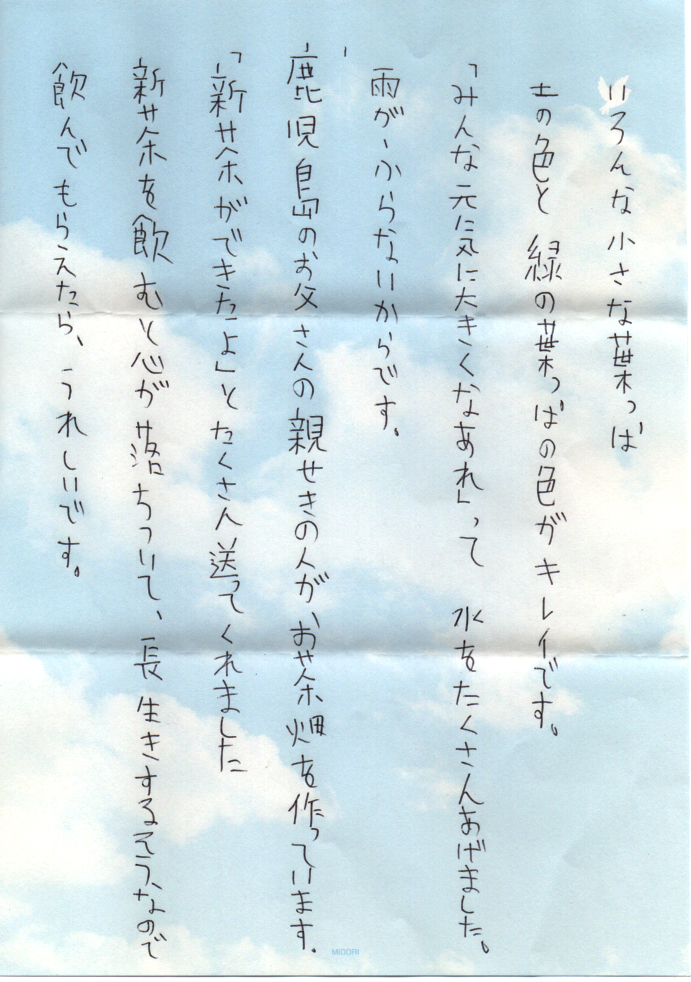 いろんな小さな葉っぱ
土の色と緑の葉っぱの色がキレイです。
「みんな元に気に大きくなあれ」って 水をたくさんあげました。
雨が、ふらないからです。
鹿児島のお父さんの親せきの人が、お茶畑を作っています。
「新茶ができたよ」とたくさん送ってくれました
新茶を飲むと心が落ちついて、長生きするそう、なので
飲んでもらえたら、うれしいです。
MIDORI